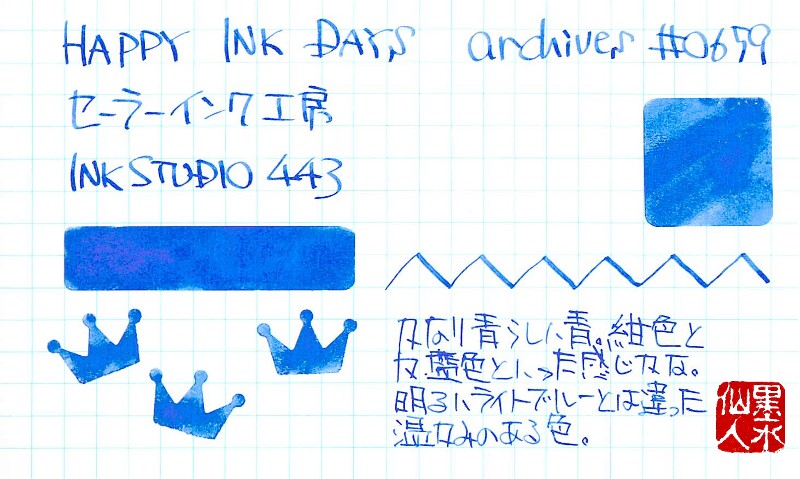 HAPPY INK DAYS archives #0659
セーラーインク工房
INK STUDIO 443
かなり青らしい青。紺色と
か藍色といった感じかな。
明るいライトブルーとは違った
温かみのある色。
墨水
仙人